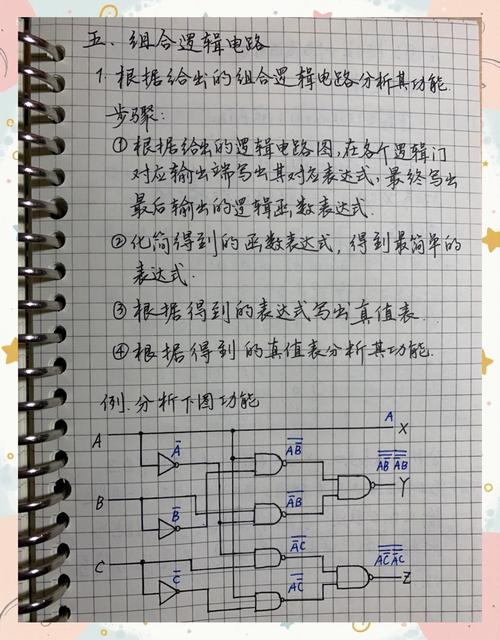 五、组合逻辑电路
1. 根据给出的组合逻辑电路分析其功能.
步骤:
① 根据给出的逻辑电路图,在各个逻辑门
对应输出端写出其对应表达式,最终写出
最后输出的逻辑函数表达式.
② 化简得到的函数表达式,得到最简单的
表达式.
③ 根据得到的表达式写出真值表.
④ 根据得到的真值表分析其功能.
例.分析下图功能
A
A X
B
Y
C
Z